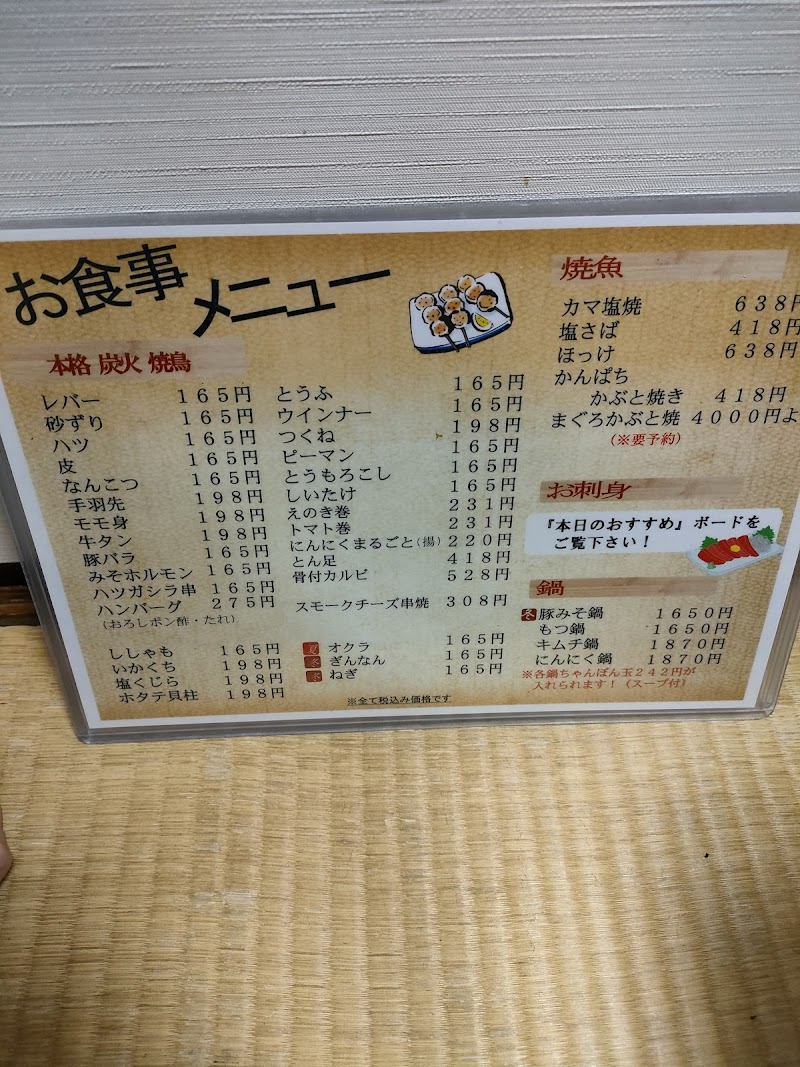 お食事メニュー
本格 炭火 焼鳥
レバー 165円
砂ずり 165円
ハツ 165円
皮 165円
なんこつ 165円
手羽先 198円
モモ身 198円
牛タン 198円
豚バラ 165円
みそホルモン 165円
ハツガシラ串 165円
ハンバーグ 275円
(おろしポン酢・たれ)
ししゃも 165円
いかくち 198円
塩くじら 198円
ホタテ貝柱 198円
とうふ 165円
ウインナー 165円
つくね 198円
ピーマン 165円
とうもろこし 165円
しいたけ 165円
えのき巻 231円
トマト巻 231円
にんにくまるごと(揚) 220円
とん足 418円
骨付カルビ 528円
スモークチーズ串焼 308円
夏 オクラ 165円
冬 ぎんなん 165円
冬 ねぎ 165円
※全て税込み価格です
焼魚
カマ塩焼 638円
塩さば 418円
ほっけ 638円
かんぱち
かぶと焼き 418円
まぐろかぶと焼 4000円よ
(※要予約)
お刺身
『本日のおすすめ』ボードを
ご覧下さい！
鍋
冬 豚みそ鍋 1650円
もつ鍋 1650円
キムチ鍋 1870円
にんにく鍋 1870円
※各鍋ちゃんぽん玉242円が
入れられます！(スープ付)